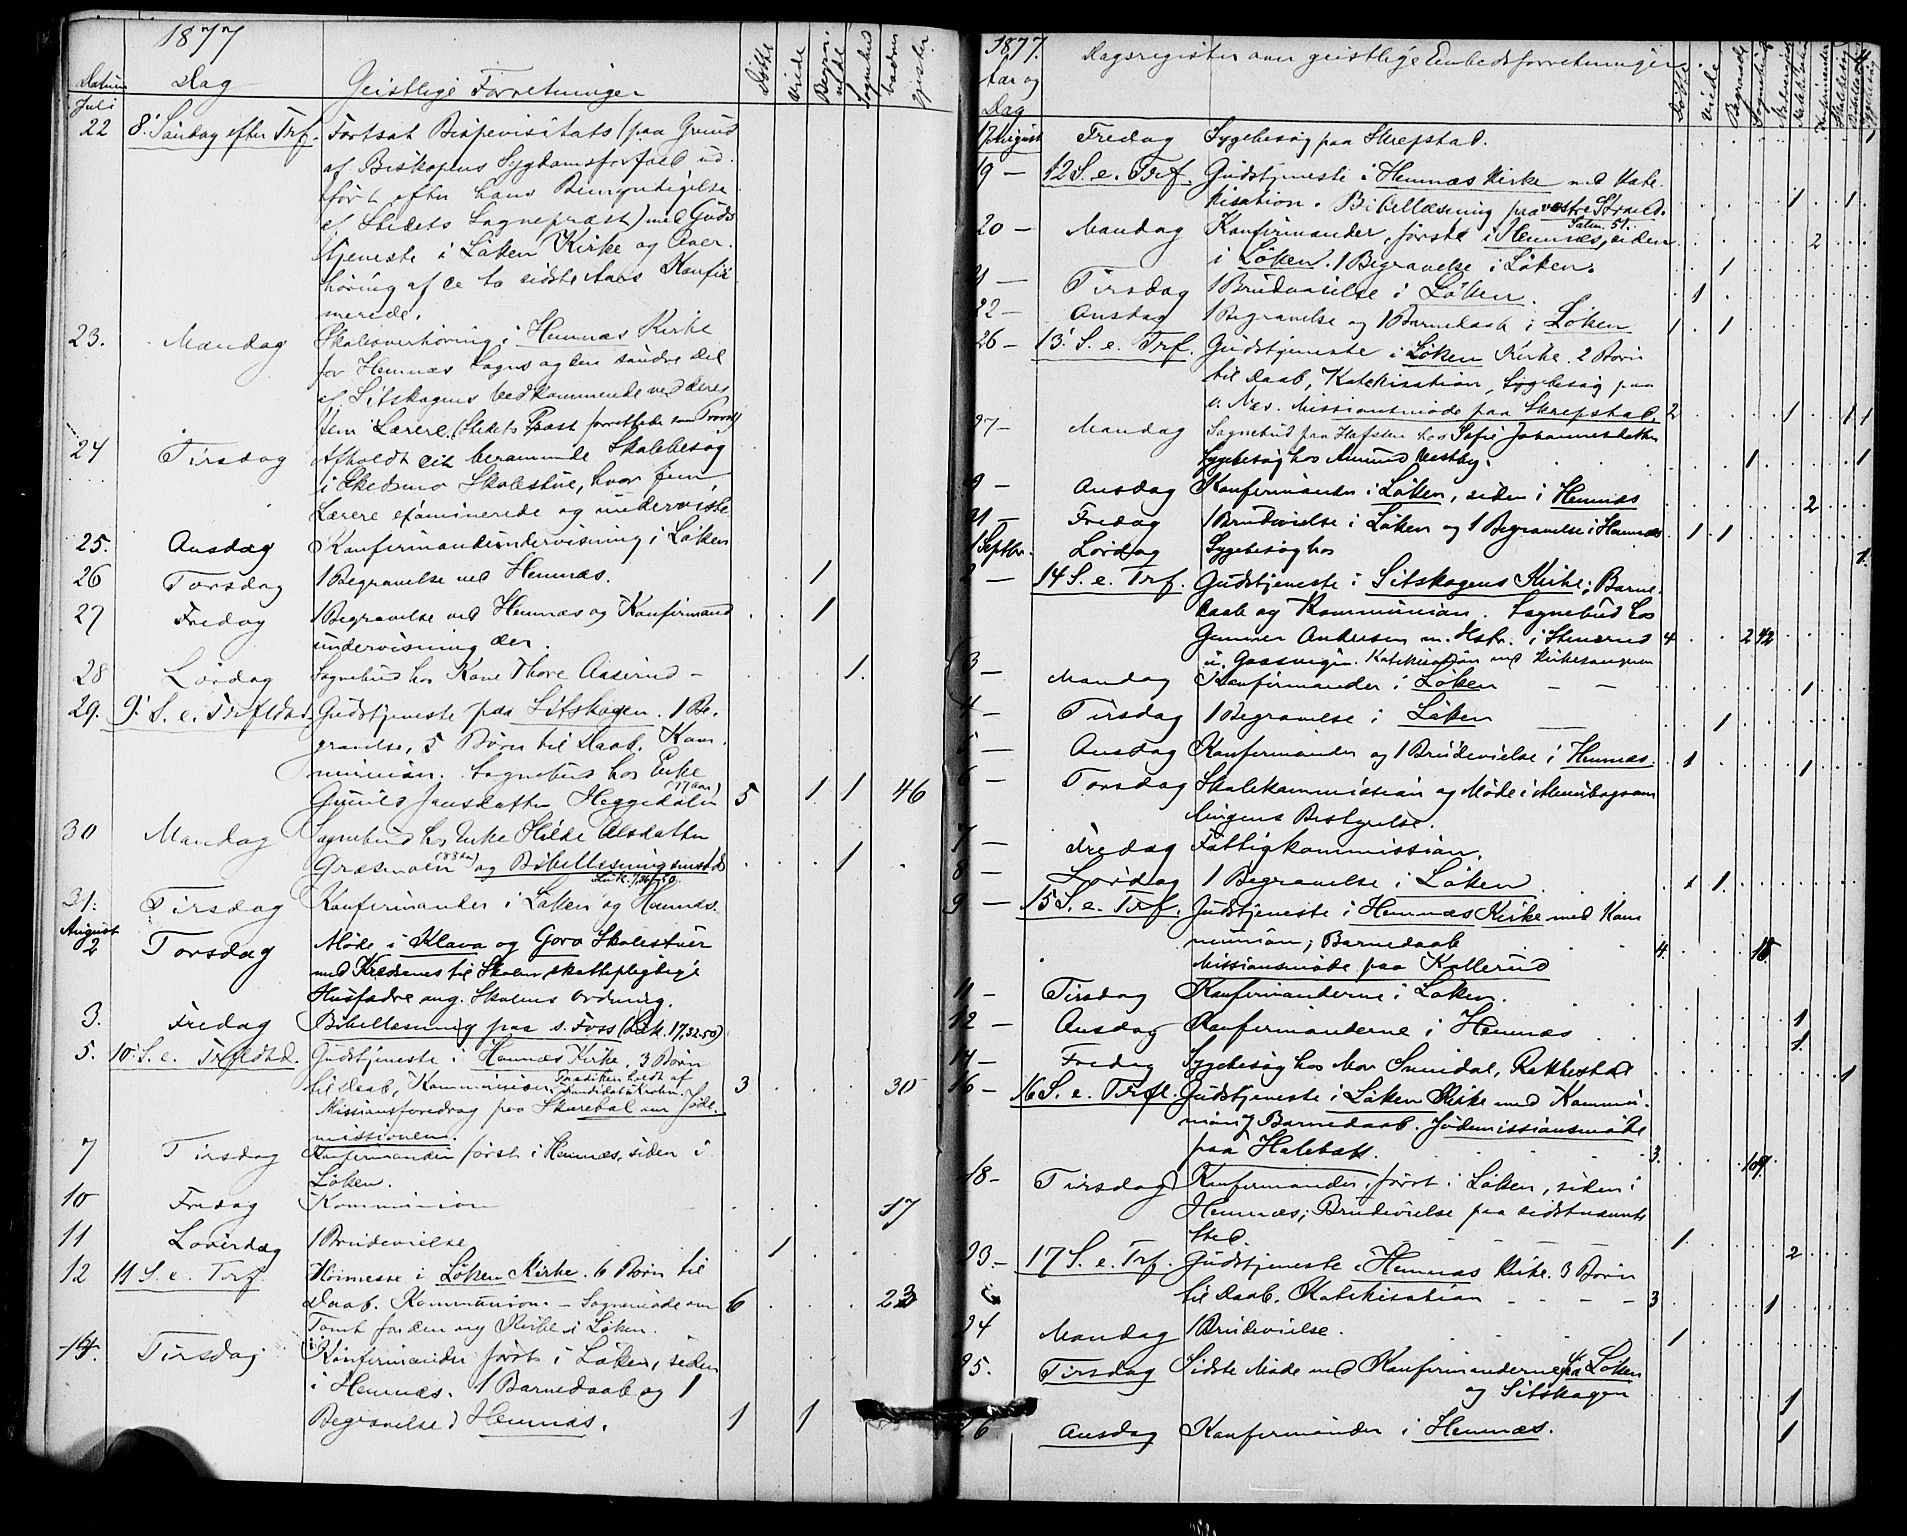 1877
Datum Dag Geistlige Forretninger Döbte Viede Begra- vede Sognebud
Juli
22 8' Söndag efter Trf. Fortsat Bispevisitats (paa Grund
af Biskopens Sygdomsforfald ud-
fört efter hans Bemyndigelse
af Stedets Sognepræst) med Guds-
tjeneste i Löken Kirke og Over-
höring af de to sidste Aars Konfir-
merede.
23. Mandag Skoleoverhöring i Hemnæs Kirke
for Hemnæs Sogns og den söndre Del
af Sitskogens Vedkommende ved deres
fem Lærere. (Stedets Præst forrettede som Provst)
24 Tirsdag Afholdt det berammede Skolebesög
i Ekedsmo Skolestue, hvor fem
Lærere examinerede og underviste
25. Onsdag Konfirmandundervisning i Löken
26 Torsdag 1 Begravelse ved Hemnæs. 1
27 Fredag 1 Begravelse ved Hemnæs og Konfirmand 1
undervisning der.
28 Lördag Sognebud hos Kone Thore Asserud – 1.
29. 9' S. e. Trefoldh. Gudstjeneste paa Sitskogen. 1 Be-
gravelse, 5 Börn til Daab. Kom-
munion. Sognebud hos Enke
Gunild Jonsdatter Heggedalen (77 Aar) 5 1 1 46
30 Mandag Sognebud hos Enke Hilde Olsdatter
Græsmoen (88 Aar) og Bibellæsning 1
Luk. 7,36-50.
31. Tirsdag Konfirmander i Löken og Hemnæs.
August
2 Torsdag Möde i Klava og Goro Skolestuer
med Kredsenes til Skolen skattepligtige
Husfædre ang. Skolens Ordning.
3. Fredag Bibellæsning paa s. Foss (Luk. 17,32-50)
5. 10' S. e. Trefoldhd. Gudstjeneste i Hemnæs Kirke, 3 Börn
til Daab, Kommunion. Prædiken holdt af 3 30
Missionsforedrag paa Skurebøl om Jöde-
missionen.
7 Tirsdag Konfirmander först i Hemnæs, siden i
Löken.
10 Fredag Kommunion 17
11 Löverdag 1 Brudevielse 1
12 11 S. e. Trf. Höimesse i Löken Kirke. 6 Börn til
Daab. Kommunion. – Sognemöde om 6 23
Tomt for den ny Kirke i Löken.
14. Tirsdag Konfirmander först i Löken, siden
i Hemnæs. 1 Barnedaab og 1
Begravelse i Hemnæs. 1 1
1877. Dagsregister over geistlige Embedsforretninger.
Aar og
Dag
17 August Fredag Sygebesög paa Skrepstad. 1
19 – 12 S. e. Trf. Gudstjeneste i Hemnæs Kirke med Kate-
kisation. Bibellæsning paa vestre Strand. 1 1
Salm. 51.
20 – Mandag Konfirmander, förste i Hemnæs, siden 2
i Löken. 1 Begravelse i Löken. 1
21 – Tirsdag 1 Brudevielse i Löken. 1
22 – Onsdag 1 Begravelse og 1 Barnedaab i Löken 1 1
26 – 13' S. e. Trf. Gudstjeneste i Löken Kirke. 2 Börn
til Daab, Katekisation, Sygebesög paa
v. Næs. Missionsmöde paa Skrepstad. 2 1 1 1
27 – Mandag Sognebud paa Hofsten hos Sofie Johannesdatter
Sygebesög hos Amund Vestby. 1 1
29 – Onsdag Konfirmander i Löken, siden i Hemnæs 2
31 – Fredag 1 Brudevielse i Löken og 1 Begravelse i Hemnæs 1 1
1 Septbr. Lördag Sygebesög hos 1.
2 – 14 S. e. Trf. Gudstjeneste i Sitskogens Kirke; Barne-
daab og Kommunion. Sognebud hos
Gunner Andersen m. Hstr. i Stenerud 4 2 42
u. Gaasvigen. Katekisation med Kirkesangeren
3 – Mandag Konfirmander i Löken – – 1
4 – Tirsdag 1 Begravelse i Löken – 1
5 – Onsdag Konfirmander og 1 Brudevielse i Hemnæs. 1 1
6 – Torsdag Skolekommission og Möde i Menibogsam
lingens Bestyrelse.
7 – Fredag Fattigkommission.
8 – Lördag 1 Begravelse i Löken. 1 1
9 – 15 S. e. Trf. Gudstjeneste i Hemnæs Kirke med Kom
munion; Barnedaab 4. 18
Missionsmöde paa Kollerud
11 – Tirsdag Konfirmanderne i Löken.
12 – Onsdag Konfirmanderne i Hemnæs 1
14 – Fredag Sygebesög hos Mor Smidal, Rakkestad 1
16 – 16 S. e. Trfl. Gudstjeneste i Löken Kirke med Kommu-
nion; Barnedaab. Jödemissionsmöde
paa Halebæk. 3. 109
18 – Tirsdag Konfirmander, först i Löken, siden i
Hemnæs; Brudevielse paa sidstnævnte
Sted. 1 2
23 – 17 S. e. Trf. Gudstjeneste i Hemnæs Kirke. 3 Börn
til Daab. Katekisation – – – 3 1
24 Mandag 1 Brudevielse. 1
25. Tirsdag Sidste Möde med Konfirmanderne fra Löken
og Sitskogen 1
26 Onsdag Konfirmander i Hemnæs. 1